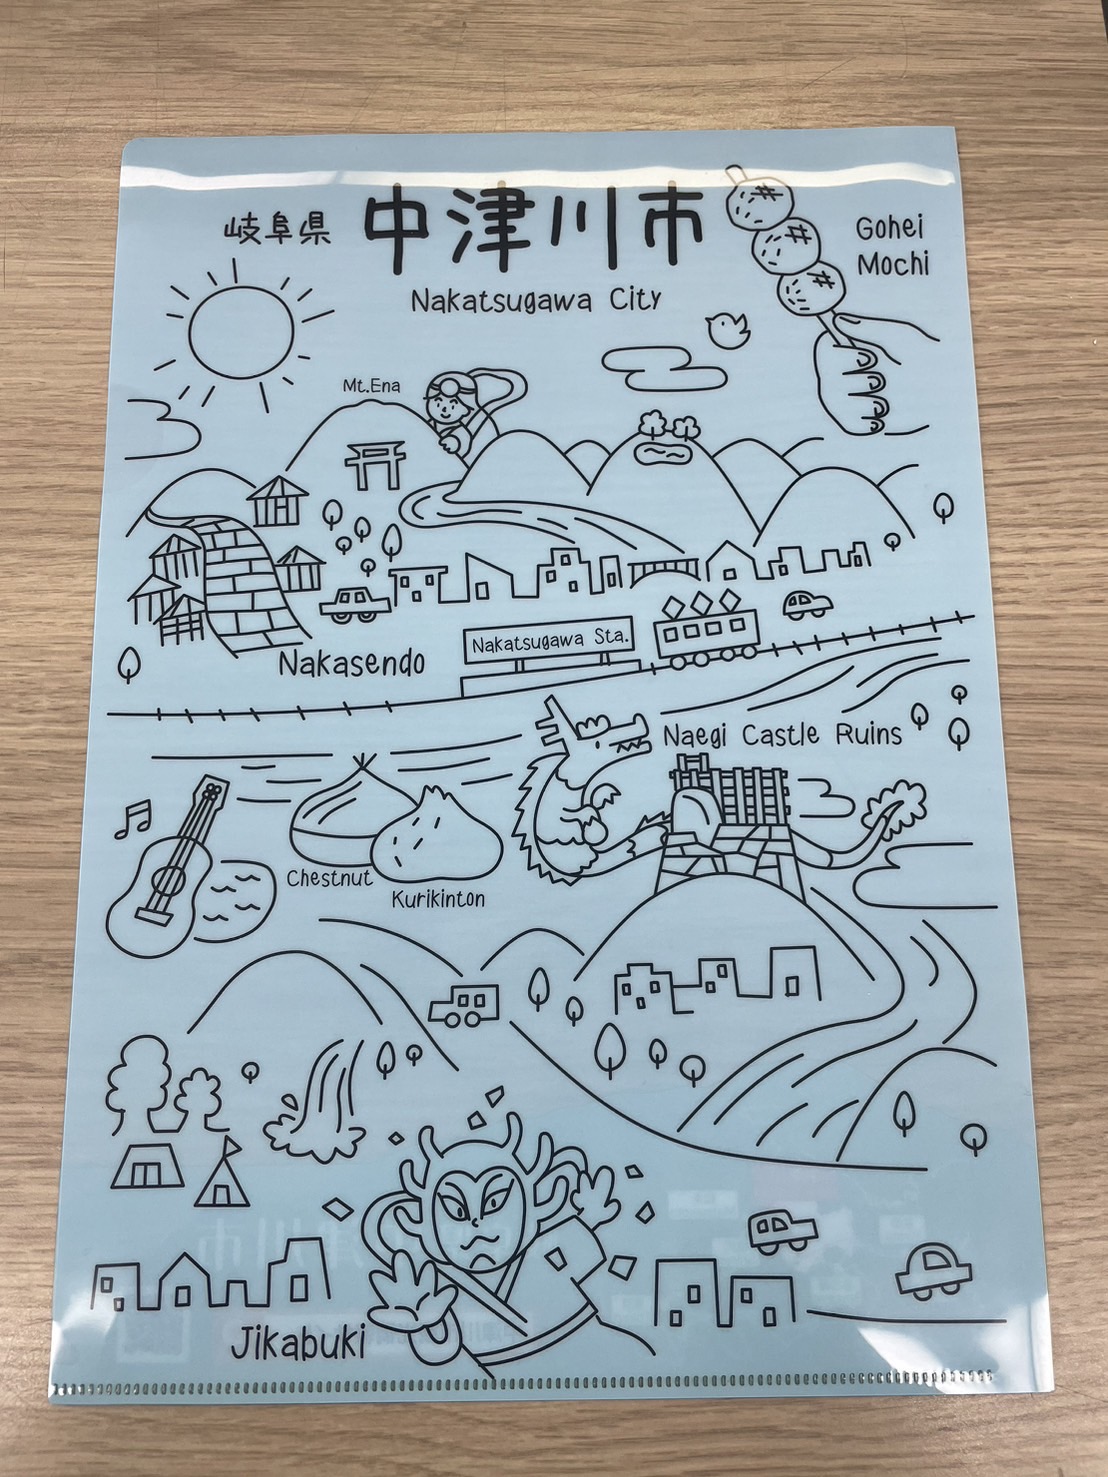 岐阜県 中津川市
Nakatsugawa City
Gohei
Mochi
Mt.Ena
Nakatsugawa Sta.
Nakasendo
Naegi Castle Ruins
Chestnut
Kurikinton
Jikabuki